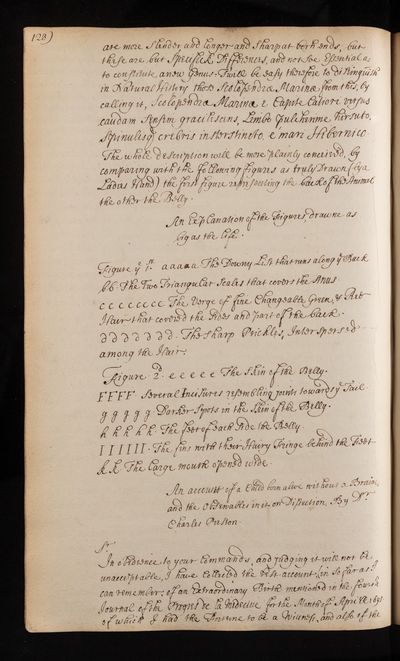 128)
are more slender and longer and sharp at both ends, but
these are but Specifick Differences, and not soe Essential as
to constitute a new Genus. Twill be easy therefore to distinguish
in Natural History these Scolopendra Marina from this, by
calling it, Scolopendra Marina e Capite Latiore versus
caudam sensim gracilescens, Limbo pulcherrime hirsuto,
Spinulisq crebris interstincto, e mari Hibernico
The whole description will be more plainly conceived, by
comparing with the following figures as truly Drawn (by a
Ladies Hand) the first figure representing the back of the Animal
the other the Belly.
An Explanation of the Figures drawne as
big as the life.
Figure ye 1st. aaaaa The Downy List that runs along ye Back
bb The Two Triangular Scales that covers the Anus
cccccccc The Verge of fine Changeable Green, & Red
Hair that covered the Sides and part of the back.
ddddddd. The Sharp Prickles, Interspersed
among the Hair.
Figure. 2. eeeee The Skin of the Belly.
FFFF Several Incisures resembling joints towards ye Tail
ggggg Darker Spots in the Skin of the Belly.
hhhhh The feet of each side the Belly.
IIIIII. The fins with their Hairy Fringe behind the Feet
kk The Large mouth opened wide.
An account of a Child born alive without a Brain,
and the Observables in it on Dissection, By Dr.
Charles Preston
Sr
In obedience to your Commands, and judging it will not be
unacceptable, I have collected the best account, (in so far as I
can remember) of an Extraordinary Birth mentioned in the fourth
Journal of the Progrés de la Médecine for the Month of Aprill, 1695
of which I had the Fortune to be a Witness, and also of the